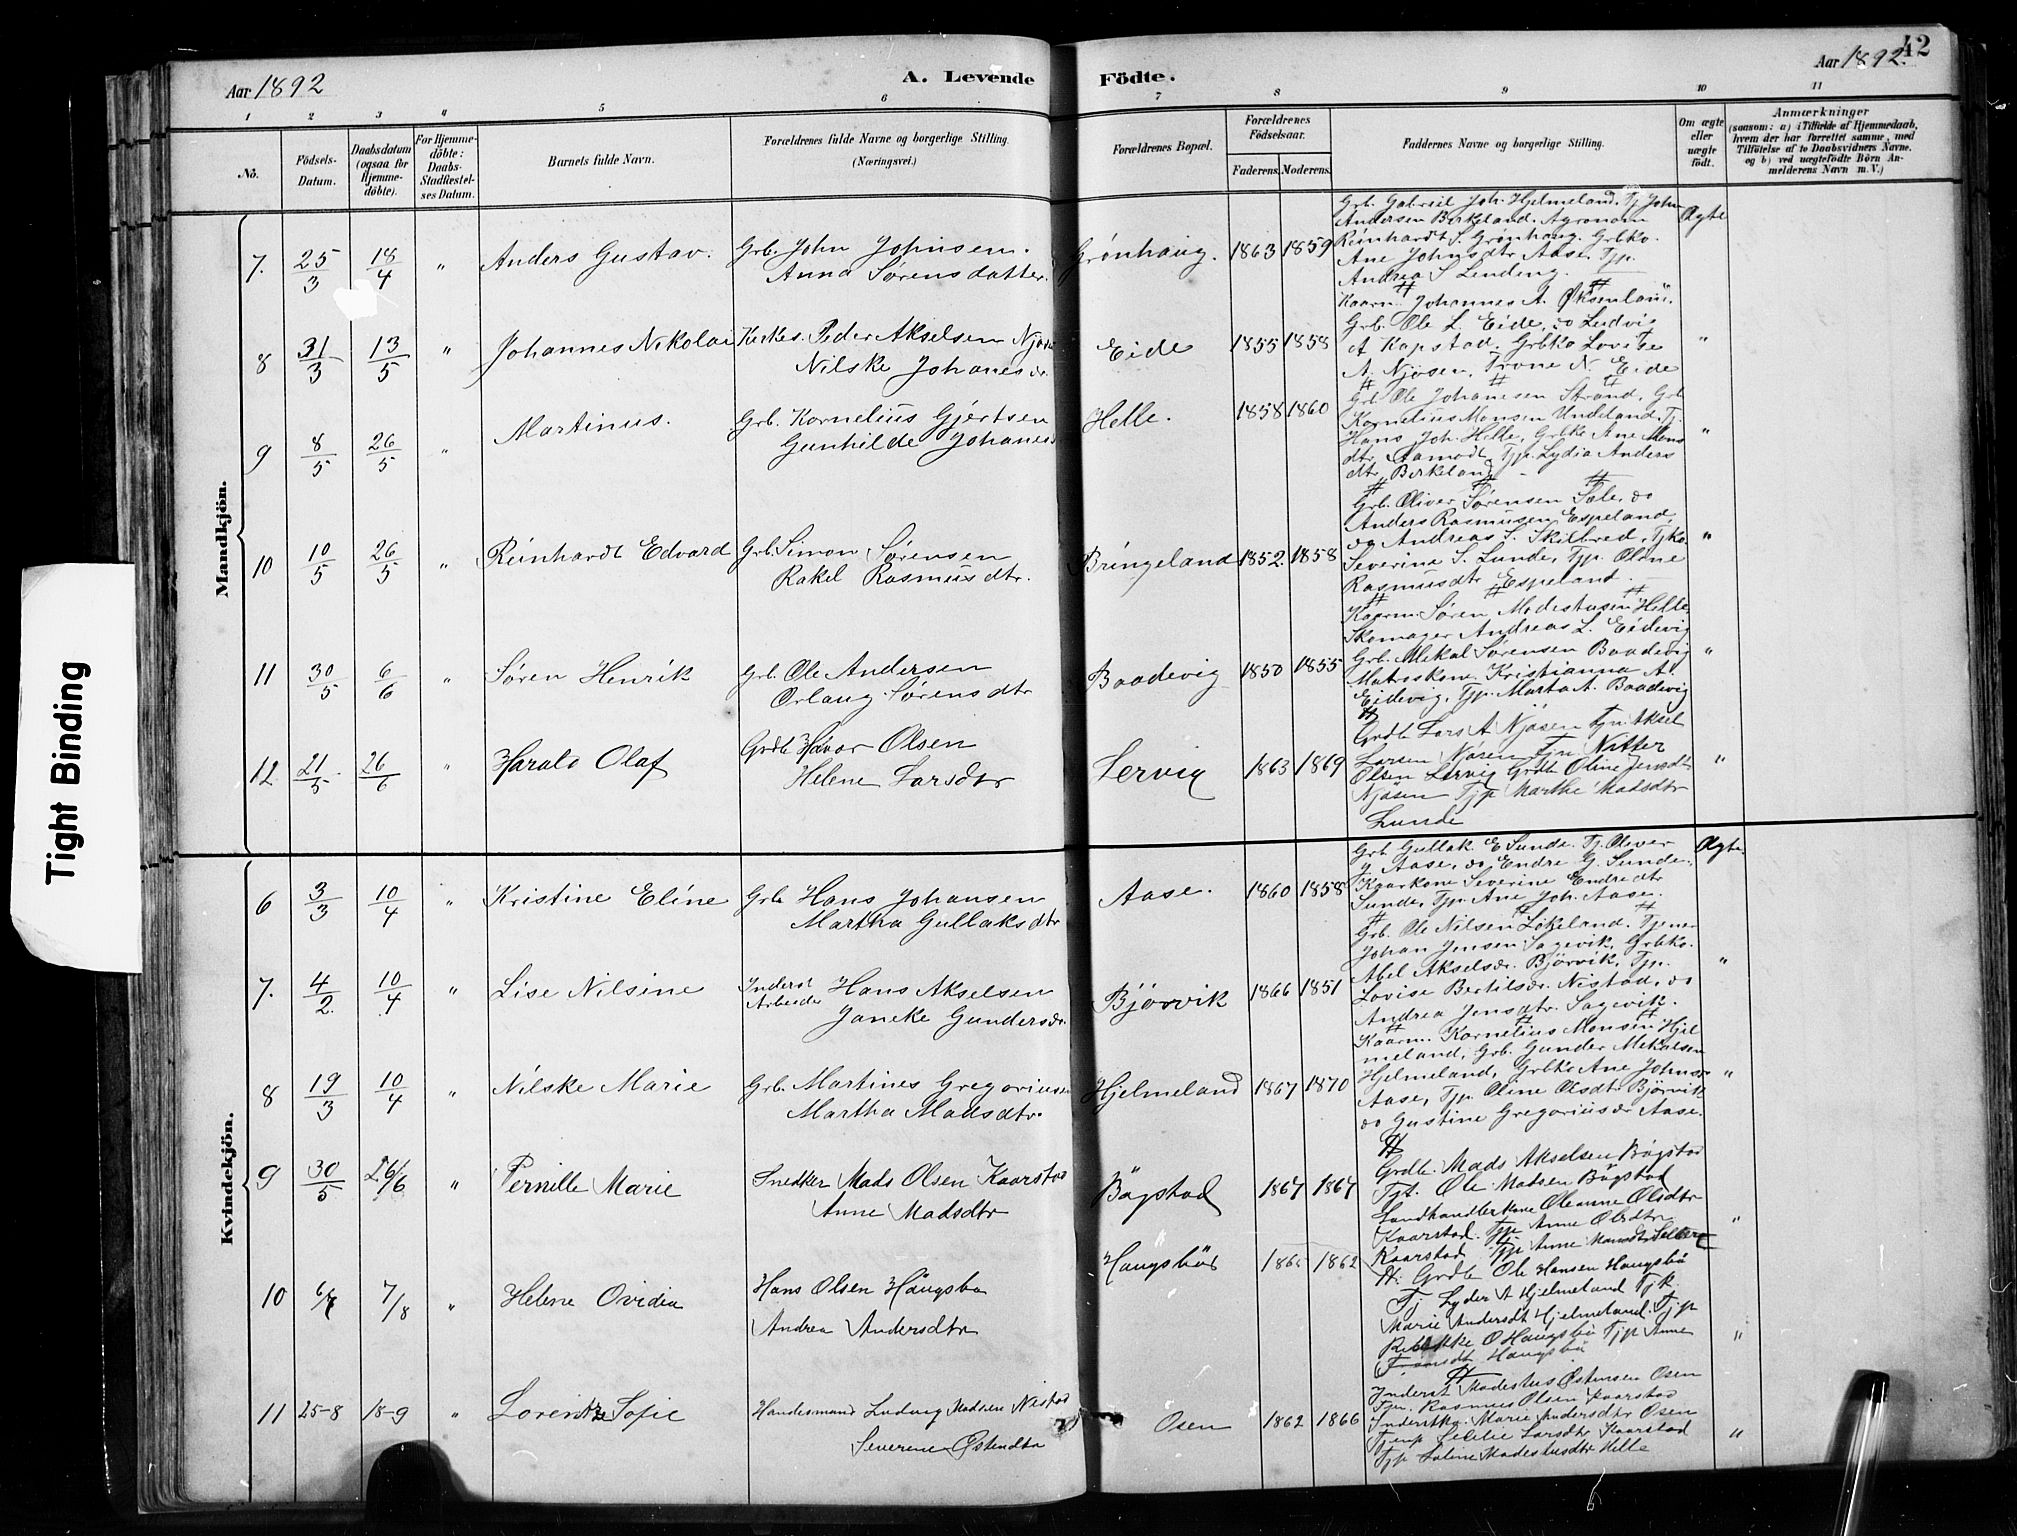 Aar 1892
A. Levende
Födte.
Aar 1892.
42
1 2 3 " 5 6 7 8 9 10 11
No.
Födsels-Datum.
Daabsdatum (ogsaa for Hjemmedöbte).
For Hjemmedöbte: Daabs-Stadfæstelses Datum.
Barnets fulde Navn.
Forældrenes fulde Navne og borgerlige Stilling. (Næringsvei.)
Forældrenes Bopæl.
Forældrenes Födselsaar.
Faderens. Moderens.
Faddernes Navne og borgerlige Stilling.
Om ægte eller uægte födt.
Anmærkninger
(saasom: a) i Tilfælde af Hjemmedaab,
hvem der har forrettet samme, med
Tilföielse af to Daabsvidners Navne.
og b) ved uægtefödte Börn An-
melderens Navn m. V.)
Mandkjön.
7. 25/3 18/4 " Anders Gustav. Grb. John Johnsen.
Anna Sørensdatter.
Grønhaug. 1863 1859
Grb. Gabriel Joh. Hjelmeland. Tj. John
Andersen Birkeland. Agronom
Reinhardt S. Grønhaug. Grbko.
Ane Johnsdtr Aase. Tjp.
Andrea S. Lending.
Ægte
8 31/3 13/5 " Johannes Nikolai Kirkes. Peder Akselsen
Nilske Johanesdr.
Eide 1855 1858
Kaarm. Johannes A. Øksenland.
Grb. Ole L. Eide, do Ludvig
A. Kapstad. Grbko Lovise
A. Njøsen, Trone N. Eide
"
9 8/5 26/5 " Martinus. Grb. Kornelius Gjertsen
Gunhilde Johanes
Helle. 1858 1860
Grb. Ole Johanesen Strand, Grb
Kornelius Monsen Undeland. Tj.
Hans Joh. Helle, Grbko Ane Mons
dtr Aamodt, Tjp. Lydia Anders
dtr Birkland
"
10 10/5 26/5 " Reinhardt Edvard Grb. Simon Sørensen
Rakel Rasmusdtr.
Bringeland 1852. 1858
Grb. Oliver Sørensen Sæle, do
Anders Rasmusen Espeland,
do Andreas S. Skilbred, Tjko
Severine S. Lunde, Tjp. Oldne
Rasmusdtr Espeland.
"
11 30/5 6/6 " Søren Henrik Grb. Ole Andersen
Orlaug Sørensdtr
Baadevig 1850 1855
Kaarm. Søren Modestusen Helle
Skomager Andreas L. Eidevig
Grb. Mikal Sørensen Baadevig
Matroskone Kristianna A.
Eidevig, Tjp. Marta A. Baadevig
"
12 21/5 26/6 " Harald Olaf Grdb Havor Olsen
Helene Larsdtr
Lervig 1863 1869
Grdb Lars A Njøsen Tjn. Aksel
Larsen Njøsen Tjn Nitter
Olsen Lervig Grdb Oline Jensdtr
Njøsen Tjp Marthe Madsdtr
Lunde
"
Kvindekjön.
6 3/3 10/4 " Kristine Eline Grb Hans Johansen
Martha Gullaksdtr
Aase. 1860 1858
Grb. Gullak E Sunde. Tj. Oliver
J. Aase, do Endre G. Sunde.
Kaarkone Severine Endredtr
Sunde, Tjp. Ane Joh. Aase.
Ægte.
7. 4/2. 10/4 " Lise Nilsine Inderst
Arbeider Hans Akselsen
Janeke Gundersdr.
Bjørvik 1866 1851
Grb. Ole Nilsen Løkeland. Tjener
Johan Jensen Sagevik, Grbko.
Abel Akselsdr. Bjørvik, Tjp.
Lovise Bertilsdr. Nistad, do
Andrea Jensdtr. Sagevik.
"
8 19/3 10/4 " Nilske Marie Grb. Martines Gregoriusen
Martha Madsdtr.
Hjelmeland 1867 1870
Kaarm. Kornelius Monsen Hjel
meland, Grb. Gunder Mikalsen
Hjelmeland, Grbko Ane Johnsdr
Aase, Tjp. Oline Olsdtr Bjørvik
do Gustine Gregoriusdr Aase.
"
9 30/5 26/6 " Pernille Marie Snedker Mads Olsen Kaarstad
Anne Madsdtr
Bögstad 1864 1864
Grdb. Mads Akselsen Bögstad
Tjt. Ole Madsen Bögstad
Landhandlerkone Oleanne Olsdtr
Kaarstad. Tjp Anne Olsdtr
Kaarstad Tjp Anne Monsdtr
"
10 6/7 7/8 " Helene Ovidia Hans Olsen Haugsbø
Andrea Andersdtr
Haugsbö 1862
Grdb Ole Hansen Haugsbö
Tj Lyder A Hjelmeland Tjk.
Marie Andersdt Hjelmeland. Tjp
O Haugsbö Tjp Anne
Haugsbö
"
11 25-8 18-9 " Sofie Handesmand Ludvig Madsen Nistad
Severene Østendtr
Osen 1862 1866
Inderst Madestus Østensen Osen
Tjn. Rasmus Olsen Kaarstad
Inderstko. Marie Andersdtr Osen
Tjmp Lecilie Larsdtr Kaarstad
Tjp Madestusdtr Helle
"
Tight Binding